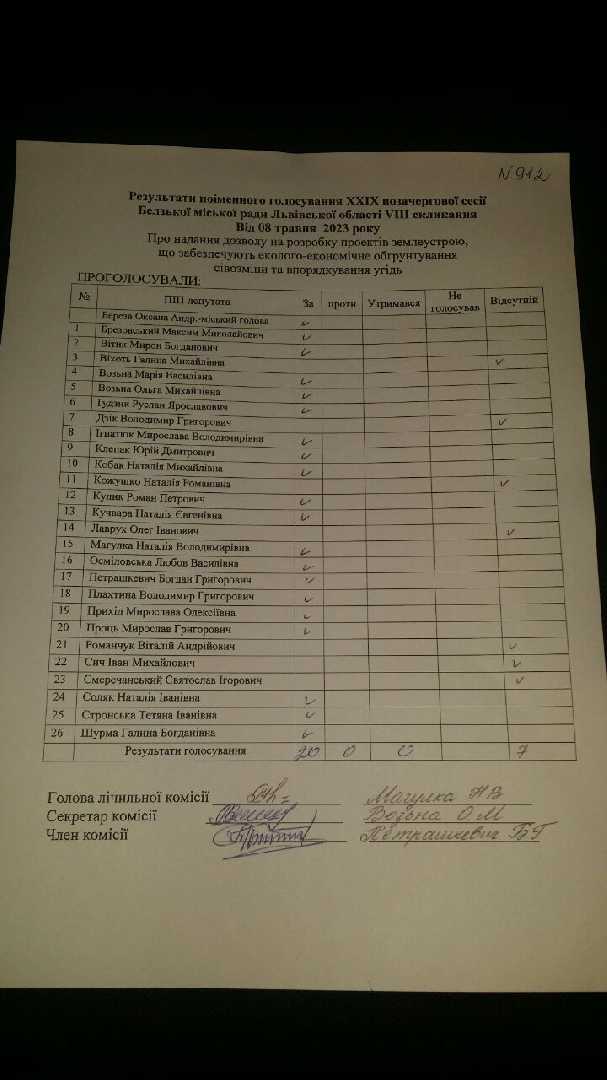 N 912
Результати поіменного голосування XXIX позачергової сесії
Белзької міської ради Львівської області VIII скликання
Від 08 травня 2023 року
Про надання дозволу на розробку проектів землеустрою,
що забезпечують еколого-економічне обґрунтування
сівозміни та впорядкування угідь
ПРОГОЛОСУВАЛИ:
№ ПІП депутата За проти Утримався Не голосував Відсутній
Береза Оксана Андр.-міський голова ✓
1 Брезовський Максим Миколайович ✓
2 Вітик Мирон Богданович ✓
3 Віхоть Галина Михайлівна ✓
4 Возьна Марія Василівна ✓
5 Возьна Ольга Михайлівна ✓
6 Гудзик Руслан Ярославович ✓
7 Дзік Володимир Григорович ✓
8 Ігнатюк Мирослава Володимирівна ✓
9 Клепак Юрій Дмитрович ✓
10 Кобак Наталія Михайлівна ✓
11 Кожушко Наталія Романівна ✓
12 Кулик Роман Петрович ✓
13 Кучвара Наталія Євгенівна ✓
14 Лаврух Олег Іванович ✓
15 Магулка Наталія Володимирівна ✓
16 Осміловська Любов Василівна ✓
17 Петрашкевич Богдан Григорович ✓
18 Плахтина Володимир Григорович ✓
19 Прихід Мирослава Олексіївна ✓
20 Проць Мирослав Григорович ✓
21 Романчук Віталій Андрійович ✓
22 Сич Іван Михайлович ✓
23 Смеречанський Святослав Ігорович ✓
24 Соляк Наталія Іванівна ✓
25 Стронська Тетяна Іванівна ✓
26 Щурма Галина Богданівна ✓
Результати голосування 20 0 0 7
Голова лічильної комісії Магулка Н В
Секретар комісії Возьна О.М
Член комісії Петрашкевич Б Г